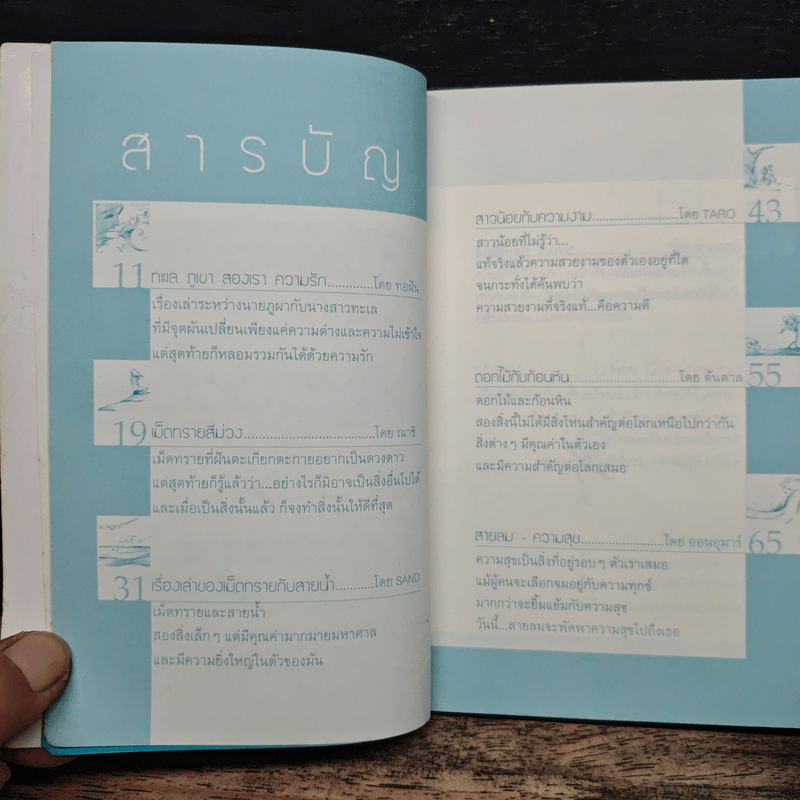 สารบัญ
11 ทะเล ภูเขา สองเรา ความรัก............โดย ทอฝัน
เรื่องเล่าระหว่างนายภูผากับนางสาวทะเล
ที่มีจุดผันเปลี่ยนเพียงแค่ความต่างและความไม่เข้าใจ
แต่สุดท้ายก็หลอมรวมกันได้ด้วยความรัก
19 เม็ดทรายสีม่วง.................................โดย ณาชิ
เม็ดทรายที่ฝันตะเกียกตะกายอยากเป็นดวงดาว
แต่สุดท้ายก็รู้แล้วว่า...อย่างไรก็มิอาจเป็นสิ่งอื่นไปได้
และเมื่อเป็นสิ่งนั้นแล้ว ก็จงทำสิ่งนั้นให้ดีที่สุด
31 เรื่องเล่าของเม็ดทรายกับสายน้ำ..........โดย SAND
เม็ดทรายและสายน้ำ
สองสิ่งเล็กๆ แต่มีคุณค่ามากมายมหาศาล
และมีความยิ่งใหญ่ในตัวของมัน
สาวน้อยกับความงาม..........................โดย TARO 43
สาวน้อยที่ไม่รู้ว่า...
แท้จริงแล้วความสวยงามของตัวเองอยู่ที่ใด
จนกระทั่งได้ค้นพบว่า
ความสวยงามที่จริงแท้...คือความดี
ดอกไม้กับก้อนหิน................................โดย ต้นตาล 55
ดอกไม้และก้อนหิน
สองสิ่งนี้ไม่ได้มีสิ่งไหนสำคัญต่อโลกเหนือไปกว่ากัน
สิ่งต่างๆ มีคุณค่าในตัวเอง
และมีความสำคัญต่อโลกเสมอ
สายลม - ความสุข.........................โดย ออนอุมาร์ 65
ความสุขเป็นสิ่งที่อยู่รอบๆ ตัวเราเสมอ
แม้ผู้คนจะเลือกจมอยู่กับความทุกข์
มากกว่าจะยิ้มแย้มกับความสุข
วันนี้...สายลมจะพัดพาความสุขไปถึงเธอ